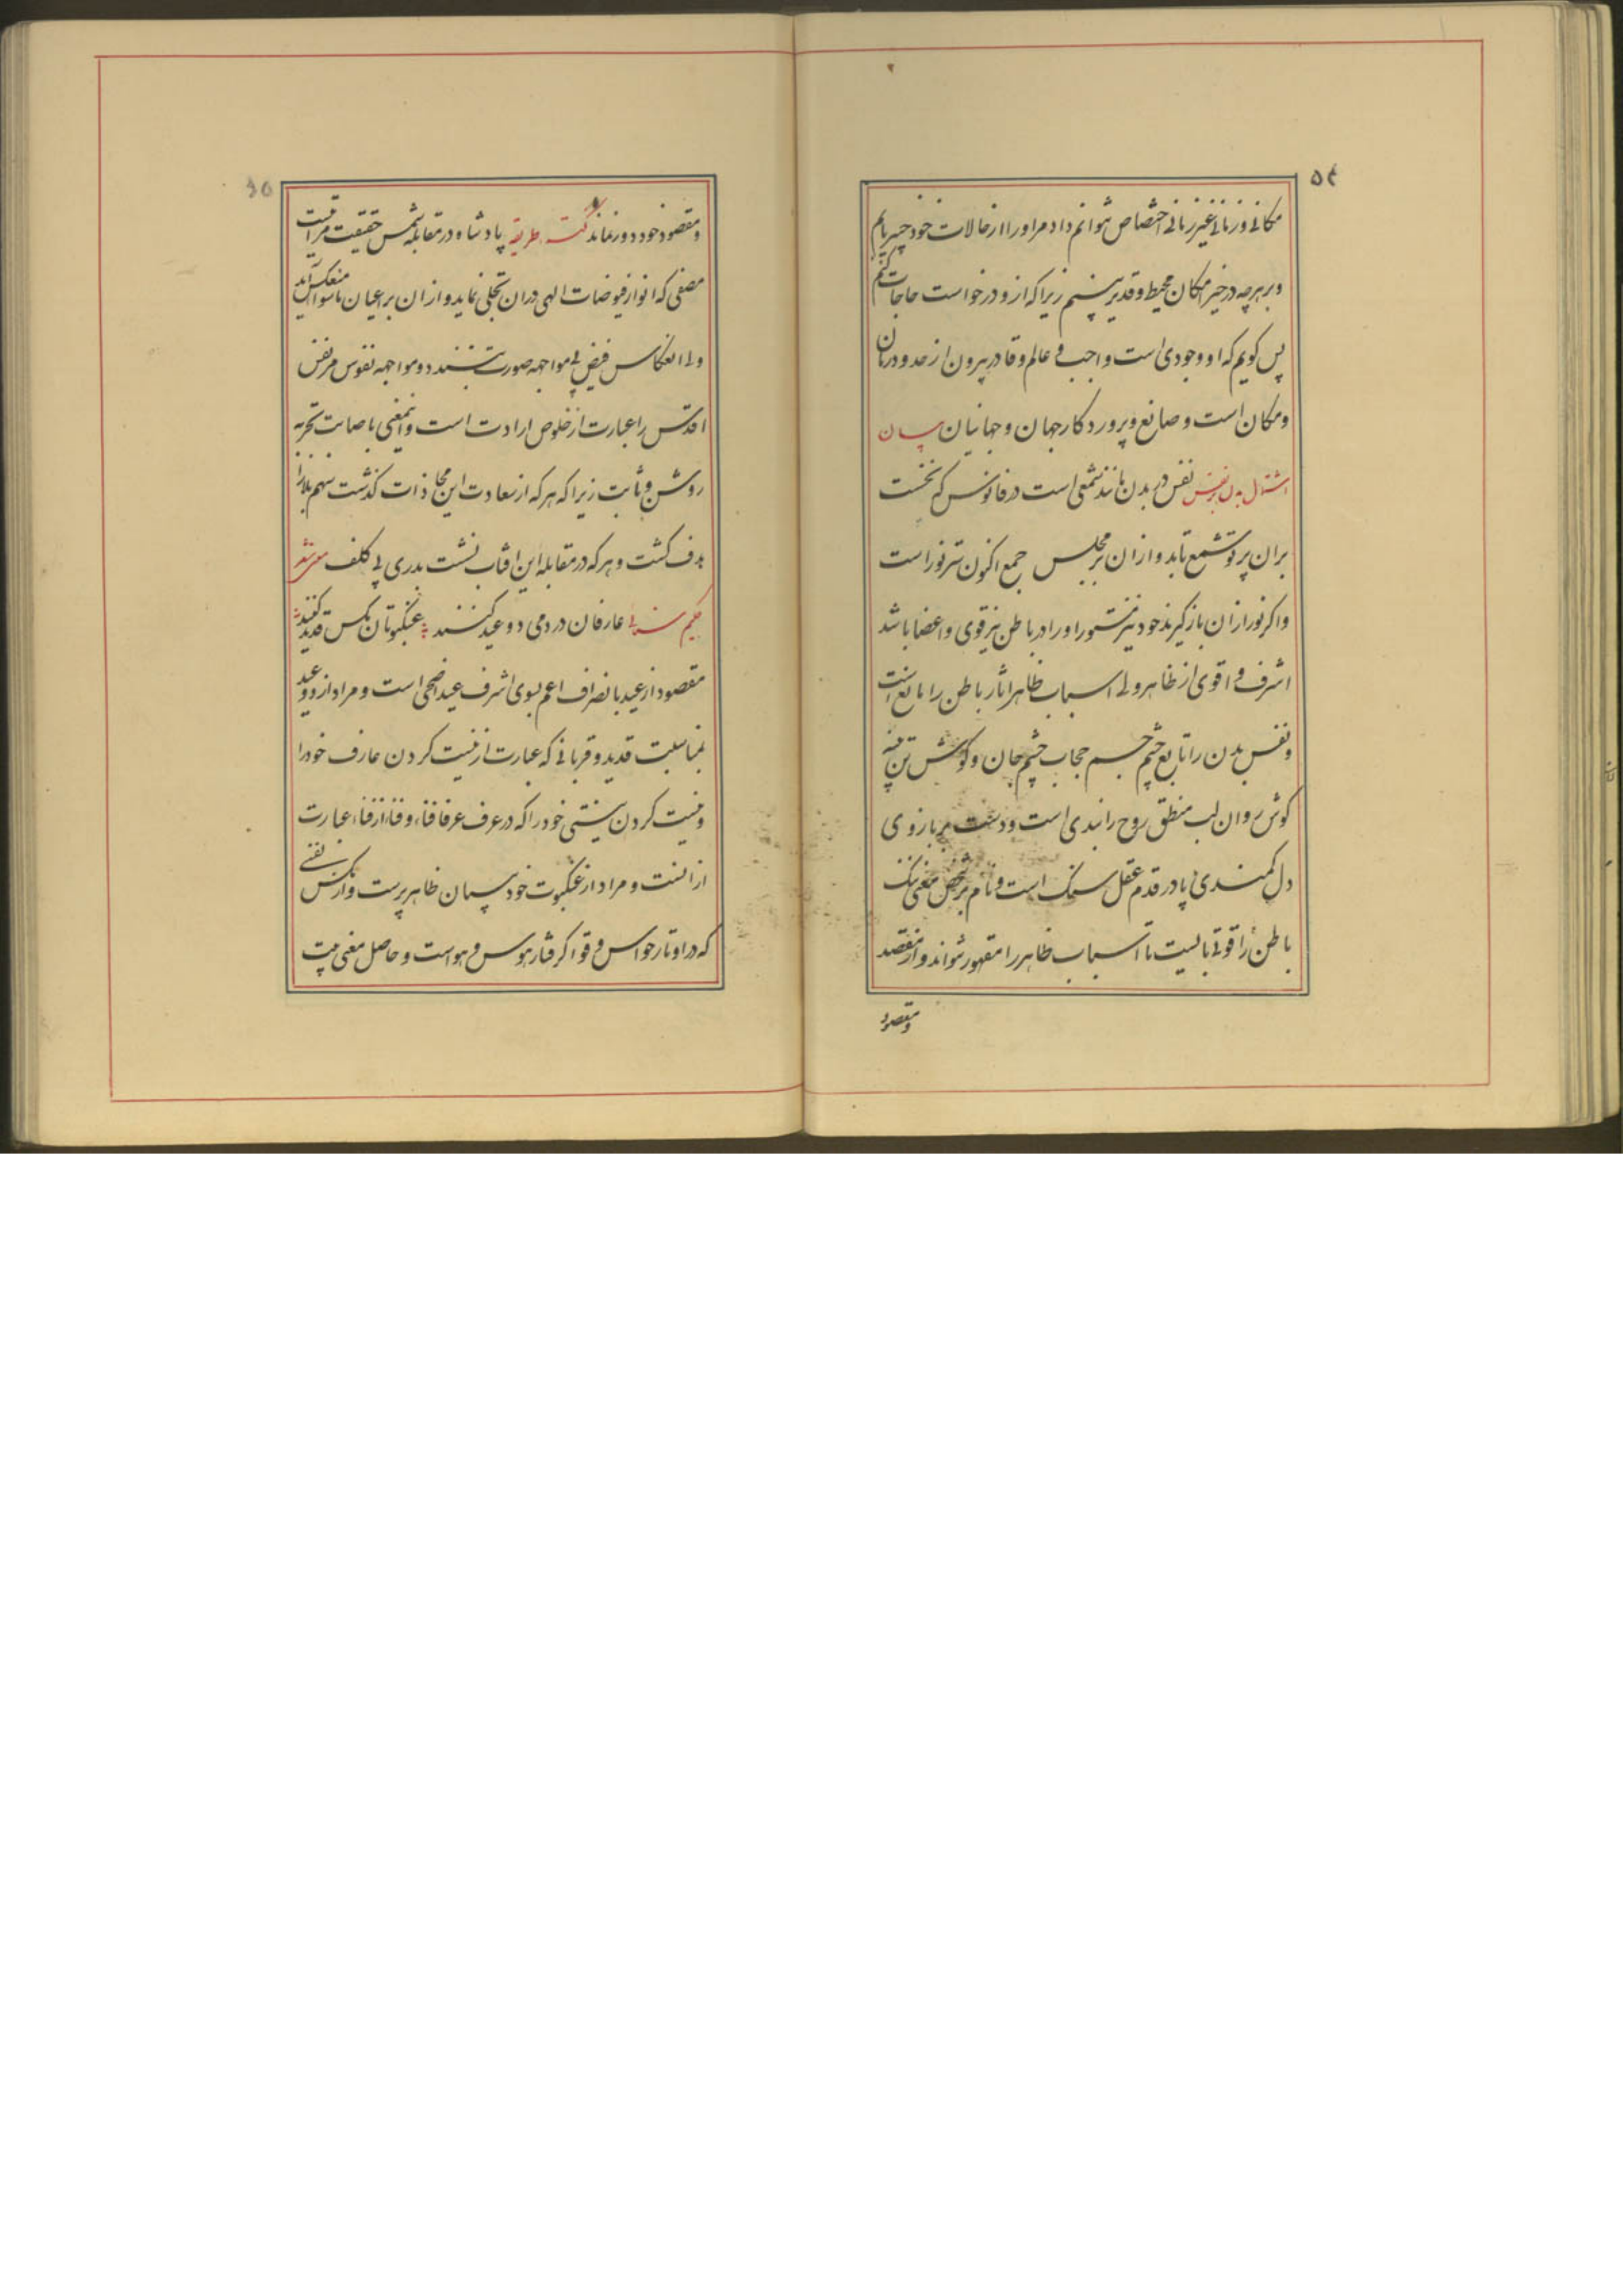 ۵۴
مکانی و زمانی غیر زمانی اختصاص نتوانم داد مر او را از حالات خود خبیر یابم
و بر هرچه در حیز امکان محیط و قدیر بینم زیرا که ازو درخواست حاجات کنم
پس کویم که او وجودی است واجب و عالم و قادر بیرون از حدود زمان
و مکان است و صانع و پروردکار جهان و جهانیان بیان
اشتمال بدن بر نفس نفس در بدن مانند شمعی است در فانوس که نخست
بران پرتو شمع تابد و ازان بر مجلس جمع اکنون ستر نور است
و اکر نور ازان بازکیرند خود نیز مستور او را در باطن نیز قوی و اعضا باشد
اشرف و اقوی از ظاهر ولی اسباب ظاهر اثار باطن را مانع است
و نفس بدن را تابع چشم جسم حجاب چشم جان و کوش تن پنبه
کوش روان لب منطق روح را بندی است و دست بر بازوی
دل کمندی پا در قدم عقل سنک است و نام بر شخص معنی ننک
باطن را قوتی بایست تا اسباب ظاهر را مقهور تواند و از مقصد
و مقصود
۵۵
و مقصود خود دور نماند نکته طریقه پادشاه در مقابله شمس حقیقت مراتیست
مصفی که انوار فیوضات الهی دران تجلی نماید و ازان بر اعیان ماسوا منعکس آید
ولی انعکاس فیض بی مواجهه صورت نبندد و مواجهه نفوس مر نفس
اقدس را عبارت از خلوص ارادت است و اینمعنی باصابت تجربه
روشن و ثابت زیرا که هر که از سعادت این محاذات کذشت سهم بلا را
هدف کشت و هر که در مقابله این افتاب نشست بدری بی کلف شد شعر
حکیم سنائی عارفان در دمی دو عید کنند عنکبوتان مکس قدید کنند
مقصود از عید بانصراف اعم بسوی اشرف عید اضحی است و مراد از دو عید
بمناسبت قدید و قربانی که عبارت از نیست کردن عارف خود را
و نیست کردن نیستی خود را که در عرف عرفا فناء و فناء از فناء عبارت
ازانست و مراد از عنکبوت خود پرستان ظاهر پرست و از مکس نفسی
که در اوتار حواس و قوا کرفتار هوس و هواست و حاصل معنی بیت